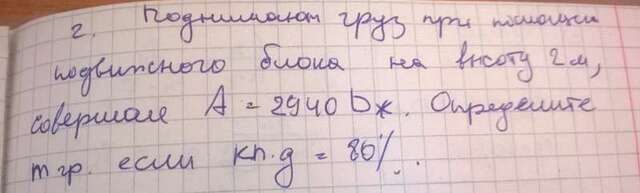 2. Поднимают груз при помощи
подвижного блока на высоту 2м,
совершая A = 2940 Дж. Определите
m гр. если кп.д = 80%.